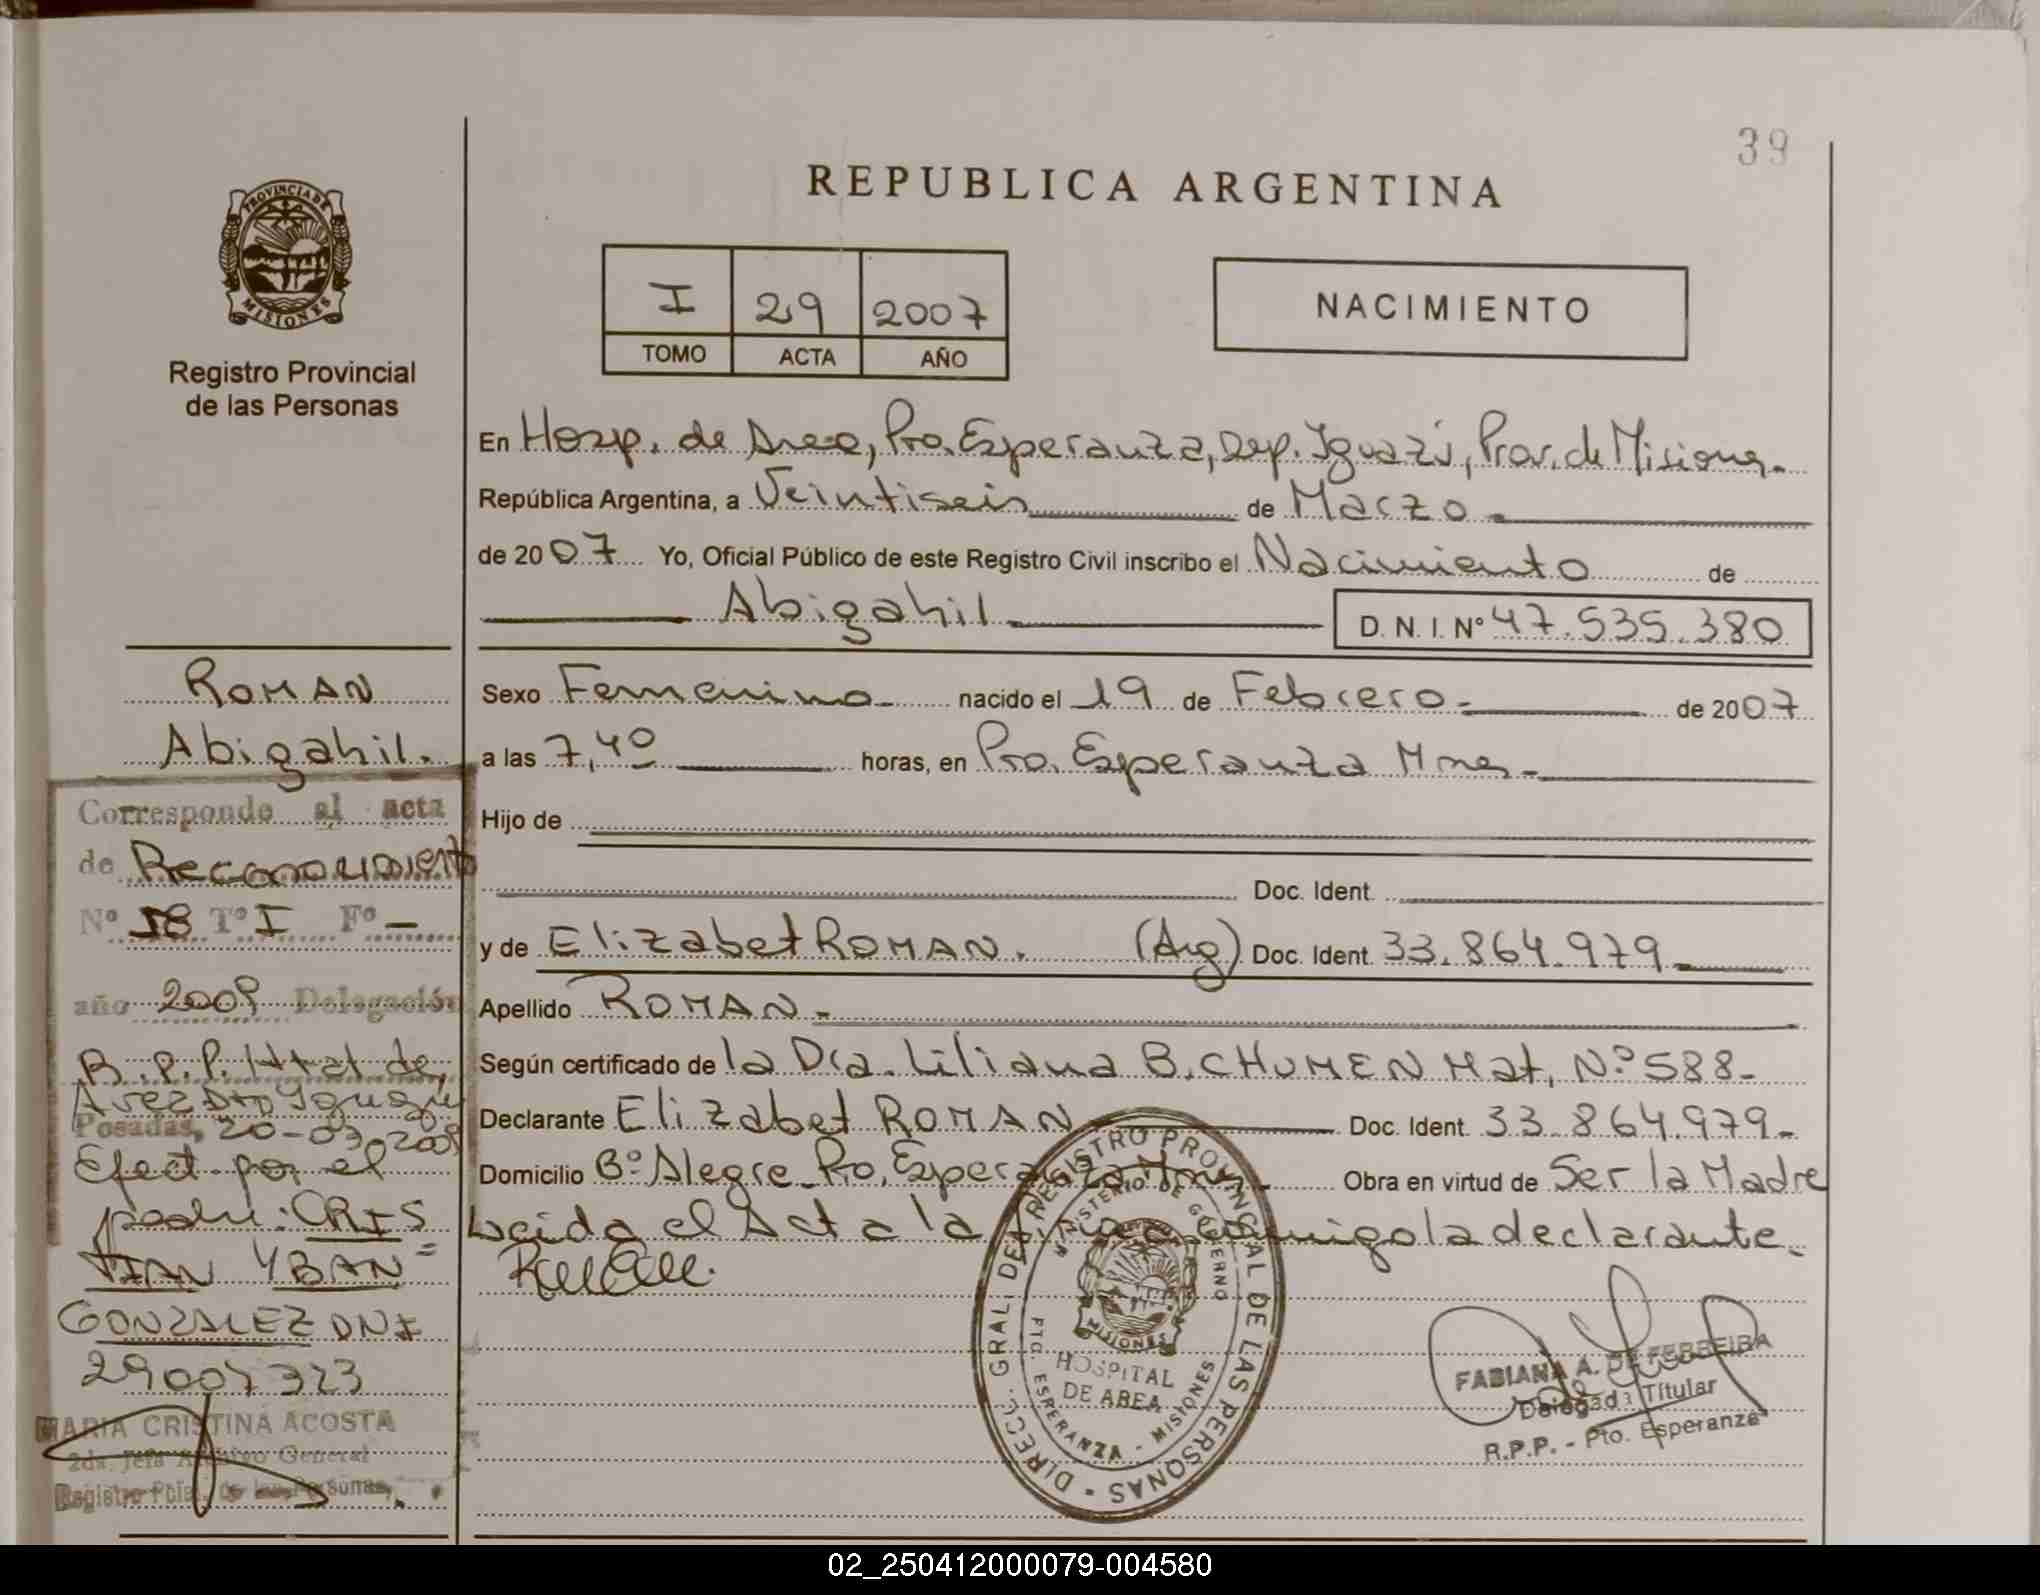 39
REPUBLICA ARGENTINA
PROVINCIA DE
MISIONES
Registro Provincial
de las Personas
I 29 2007
TOMO ACTA AÑO
NACIMIENTO
En Hosp. de Area, Pto. Esperanza, Dep. Iguazú, Prov. de Misiones.
República Argentina, a Veintiseis de Marzo.
de 2007 Yo, Oficial Público de este Registro Civil inscribo el Nacimiento de
Abigahil. D. N. I. Nº 47.535.380
Sexo Femenino. nacido el 19 de Febrero. de 2007
a las 7,40 horas, en Pto. Esperanza Mnes.
Hijo de
Doc. Ident.
y de Elizabet ROMAN. (Arg) Doc. Ident. 33.864.979
Apellido ROMAN.
Según certificado de la Dra. Liliana B. CHUMEN Mat. N.º 588.
Declarante Elizabet ROMAN Doc. Ident. 33.864.979.
Domicilio Bº Alegre. Pto. Esperanza Mnes. Obra en virtud de Ser la Madre
Leida el Acta la firma conmigo la declarante.
ROMAN
Abigahil.
Corresponde al acta
de Reconocimiento
Nº 18 Tº I Fº -
año 2009 Delegación
R.P.P. Htal de
Area Dto Iguazu
Posadas, 20-03-2009
Efect. por el
padre: CRIS
TIAN YBAN=
GONZALEZ DNI
29007323
MARIA CRISTINA ACOSTA
2da. Jefa Archivo General
Registro Pcial. de las Personas
DIREC. GRAL. DEL REGISTRO PROVINCIAL DE LAS PERSONAS
MINISTERIO DE GOBIERNO
MISIONES
HOSPITAL
DE AREA
PTO. ESPERANZA - MISIONES
FABIANA A. DE FERREIRA
Delegada Titular
R.P.P. - Pto. Esperanza
02_250412000079-004580